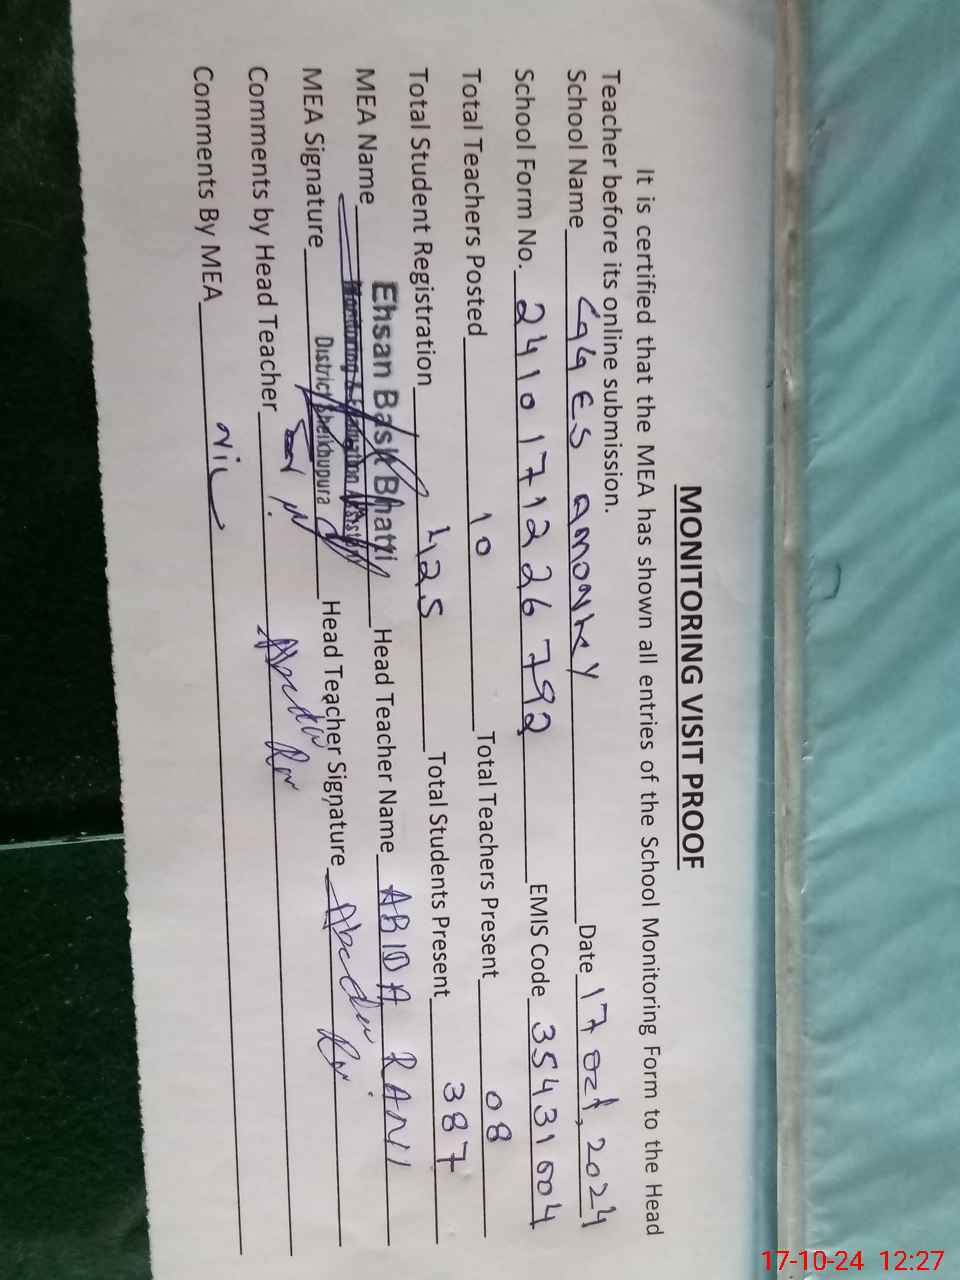 MONITORING VISIT PROOF
It is certified that the MEA has shown all entries of the School Monitoring Form to the Head
Teacher before its online submission.
School Name GGES Date 17 Oct, 2024
School Form No. 241017122 6792 EMIS Code 35431004
Total Teachers Posted 10 Total Teachers Present 08
Total Student Registration 425 Total Students Present 387
MEA Name Ehsan Basit Bhatti Head Teacher Name ABIDA RANI
Monitoring & Evaluation Assistant
District Sheikhupura
MEA Signature Head Teacher Signature
Comments by Head Teacher
Comments By MEA Nil
17-10-24 12:27